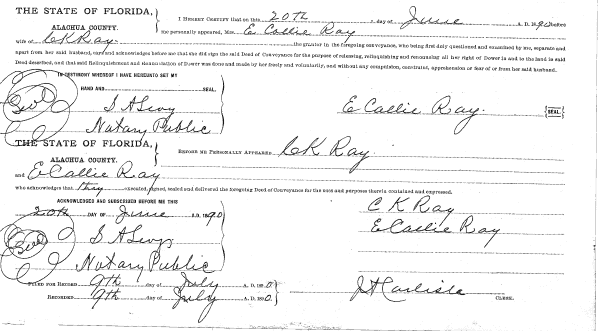 THE STATE OF FLORIDA,
ALACHUA COUNTY.
I HEREBY CERTIFY that on this 20TH day of June A. D. 1890 before
me personally appeared, Mrs. E Callie Ray
wife of C K Ray the grantor in the foregoing conveyance, who being first duly questioned and examined by me, separate and
apart from her said husband, did acknowledge before me that she did sign the said Deed of Conveyance for the purpose of releasing, relinquishing and renouncing all her right of Dower in and to the land in said
Deed described, and that said Relinquishment and Renunciation of Dower was done and made by her freely and voluntarily, and without any compulsion, constraint, apprehension or fear of or from her said husband.
IN TESTIMONY WHEREOF I HAVE HEREUNTO SET MY
HAND AND SEAL.
Seal
S A Levy
E Callie Ray. SEAL.
Notary Public
THE STATE OF FLORIDA,
ALACHUA COUNTY.
BEFORE ME PERSONALLY APPEARED C K Ray
and E Callie Ray
who acknowledges that they executed, signed, sealed and delivered the foregoing Deed of Conveyance for the uses and purposes therein contained and expressed.
ACKNOWLEDGED AND SUBSCRIBED BEFORE ME THIS
20TH DAY OF June A.D. 1890
C K Ray
Seal
S A Levy
E Callie Ray
Notary Public
FILED FOR RECORD 9th day of July A. D. 1890
RECORDED 9th day of July A. D. 1890
J A Carlisle CLERK.